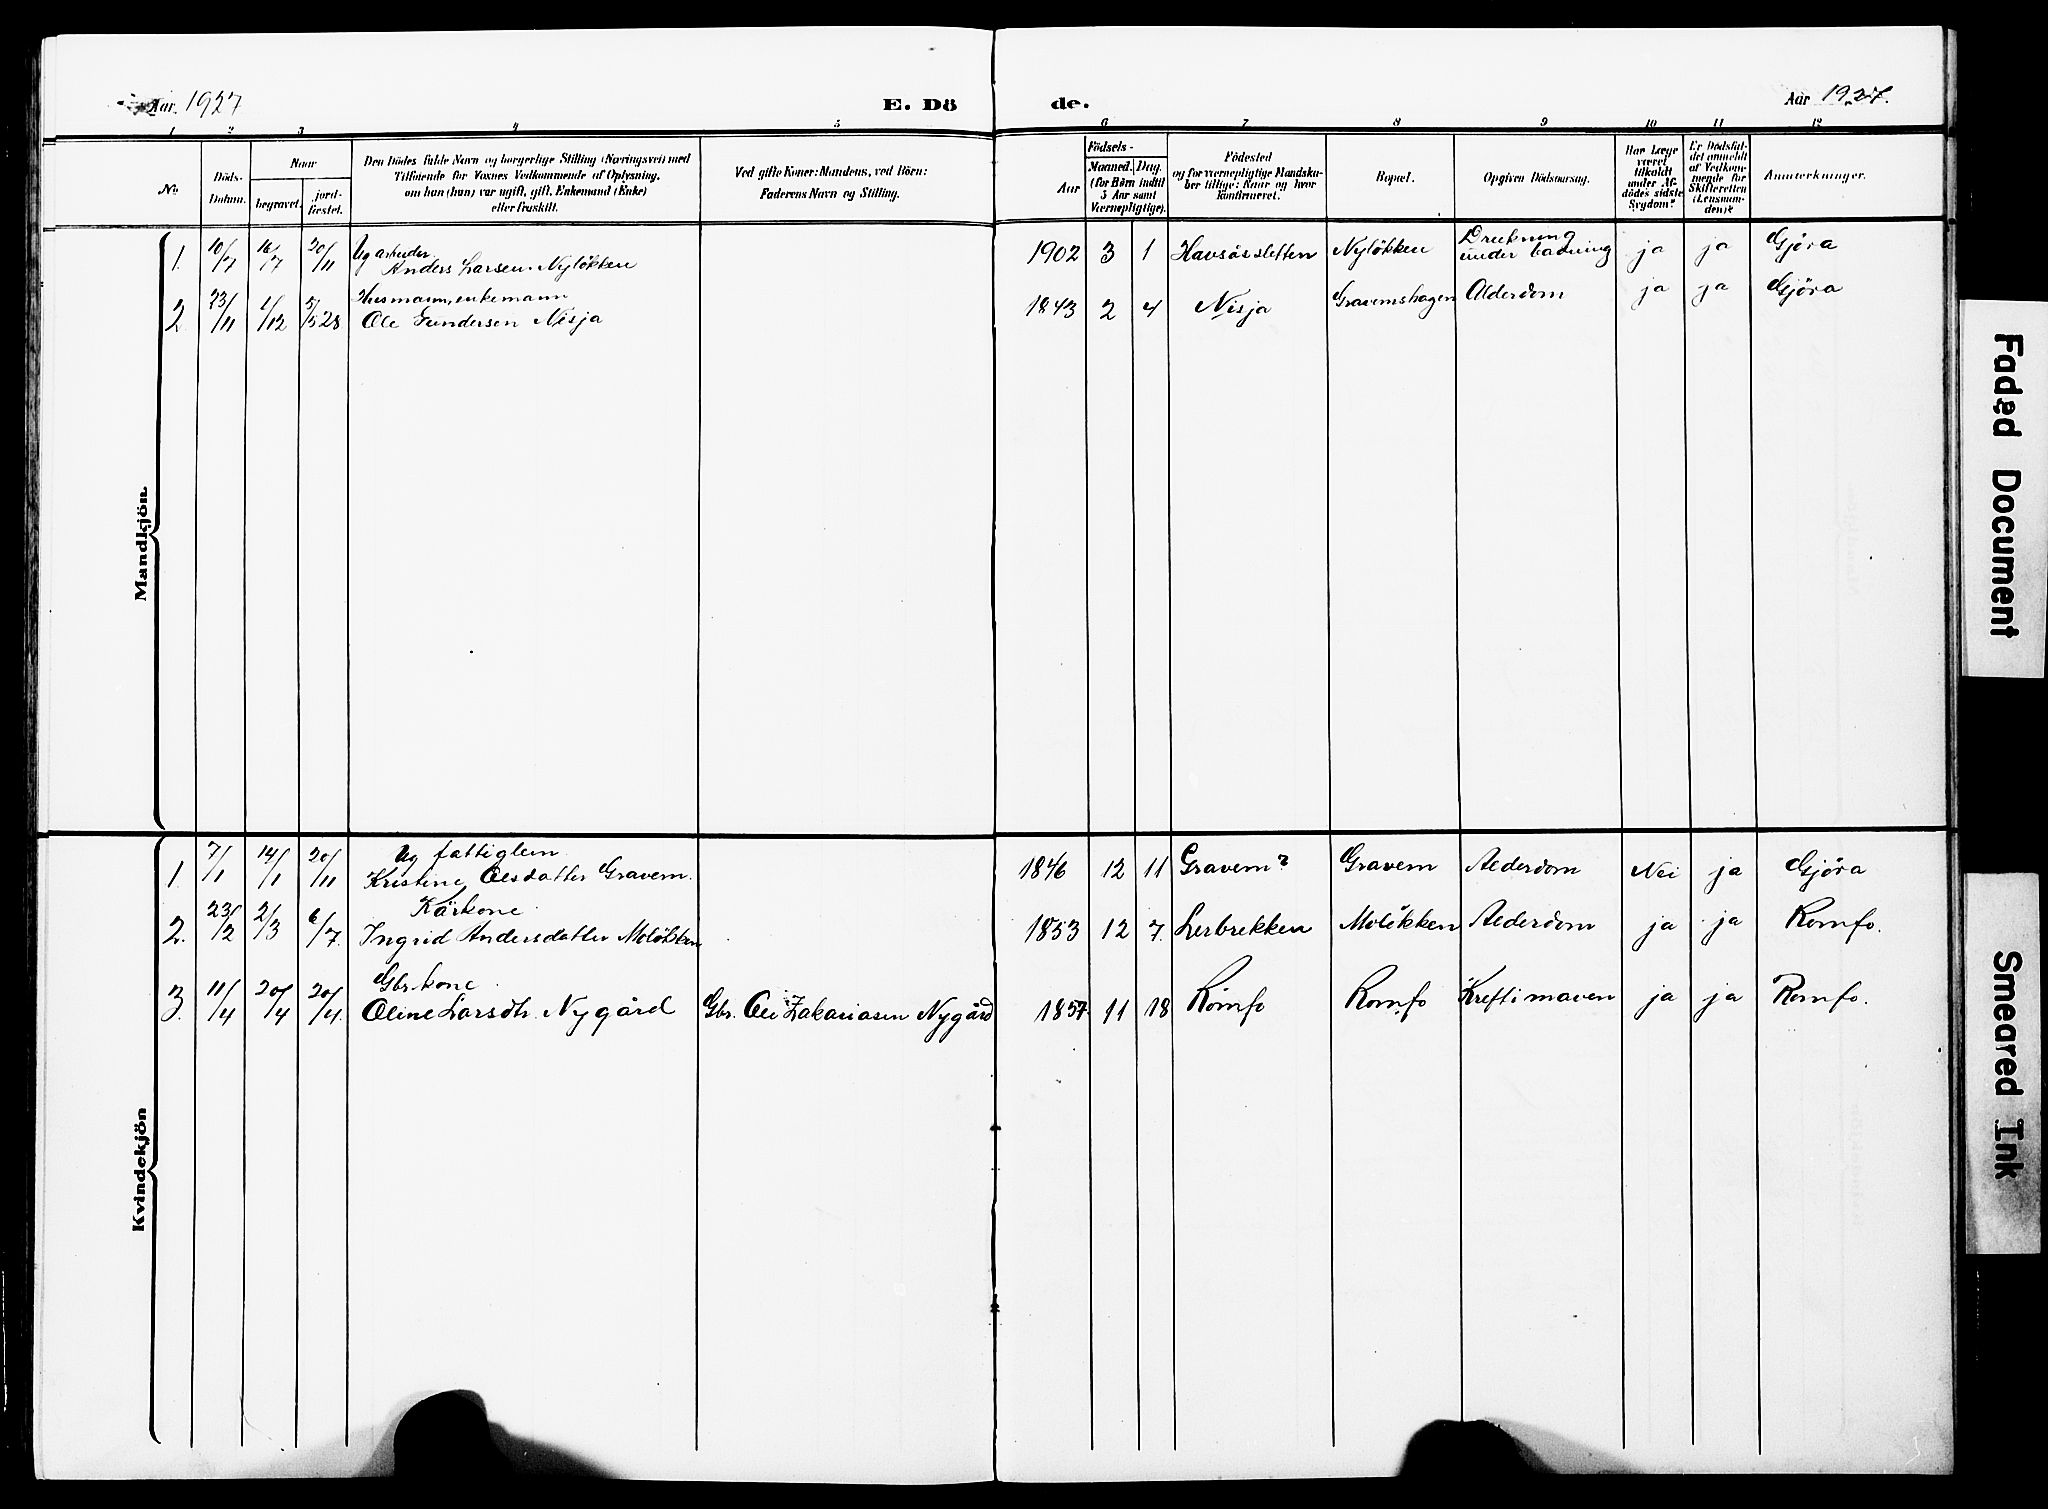 Aar 1927
E. Dö
de.
Aar 1927.
1 2 3 4 5 6 7 8 9 10 11 12
No.
Döds-
Datum.
Naar
begravet.
jord-
fæstet.
Den Dödes fulde Navn og borgerlige Stilling (Næringsvei) med
Tilföiende for Voxnes Vedkommende af Oplysning,
om han (hun) var ugift, gift, Enkemand (Enke)
eller fraskilt.
Ved gifte Koner: Mandens, ved Börn:
Faderens Navn og Stilling.
Födsels-
Aar
Maaned.
Dag.
(for Börn indtil
5 Aar samt
Værnepligtige).
Födested
og for værnepligtige Mandskа-
ber tillige: Naar og hvor
konfirmeret.
Bopæl.
Opgiven Dödsaarsag.
Har Læge
været
tilkaldt
under Af-
dödes sidste
Sygdom?
Er Dödsfal-
det anmeldt
af Vedkom-
mende for
Skifteretten
(Lensman-
den)?
Anmerkninger.
Mandkjön.
1. 10/7 16/7 20/11 Ug arbeider
Anders Larsen Nyløkken
1902 3 1 Havsåssletten Nyløkken Drukning
under badning ja ja Gjøra
2. 23/11 1/12 5/5 28 Husmann, enkemann
Ole Gundersen Nisja
1843 2 4 Nisja Gravemshagen Alderdom ja ja Gjøra
Kvindekjön
1. 7/1 14/1 20/11 Ug fattiglem
Kristine Olsdatter Gravem.
1846 12 11 Gravem? Gravem Alderdom Nei ja Gjøra
2. 23/2 2/3 6/7. Kårkone
Ingrid Andersdatter Moløkken
1853 12 7. Lerbrekken Moløkken Alderdom ja ja Romfo.
3. 11/4 20/4 20/4. Gbr.kone
Oline Larsdtr. Nygård Gbr. Ole Zakariasen Nygård
1857 11 18 Romfo Romfo Kreft i maven ja ja Romfo.
Faded Document
Smeared Ink